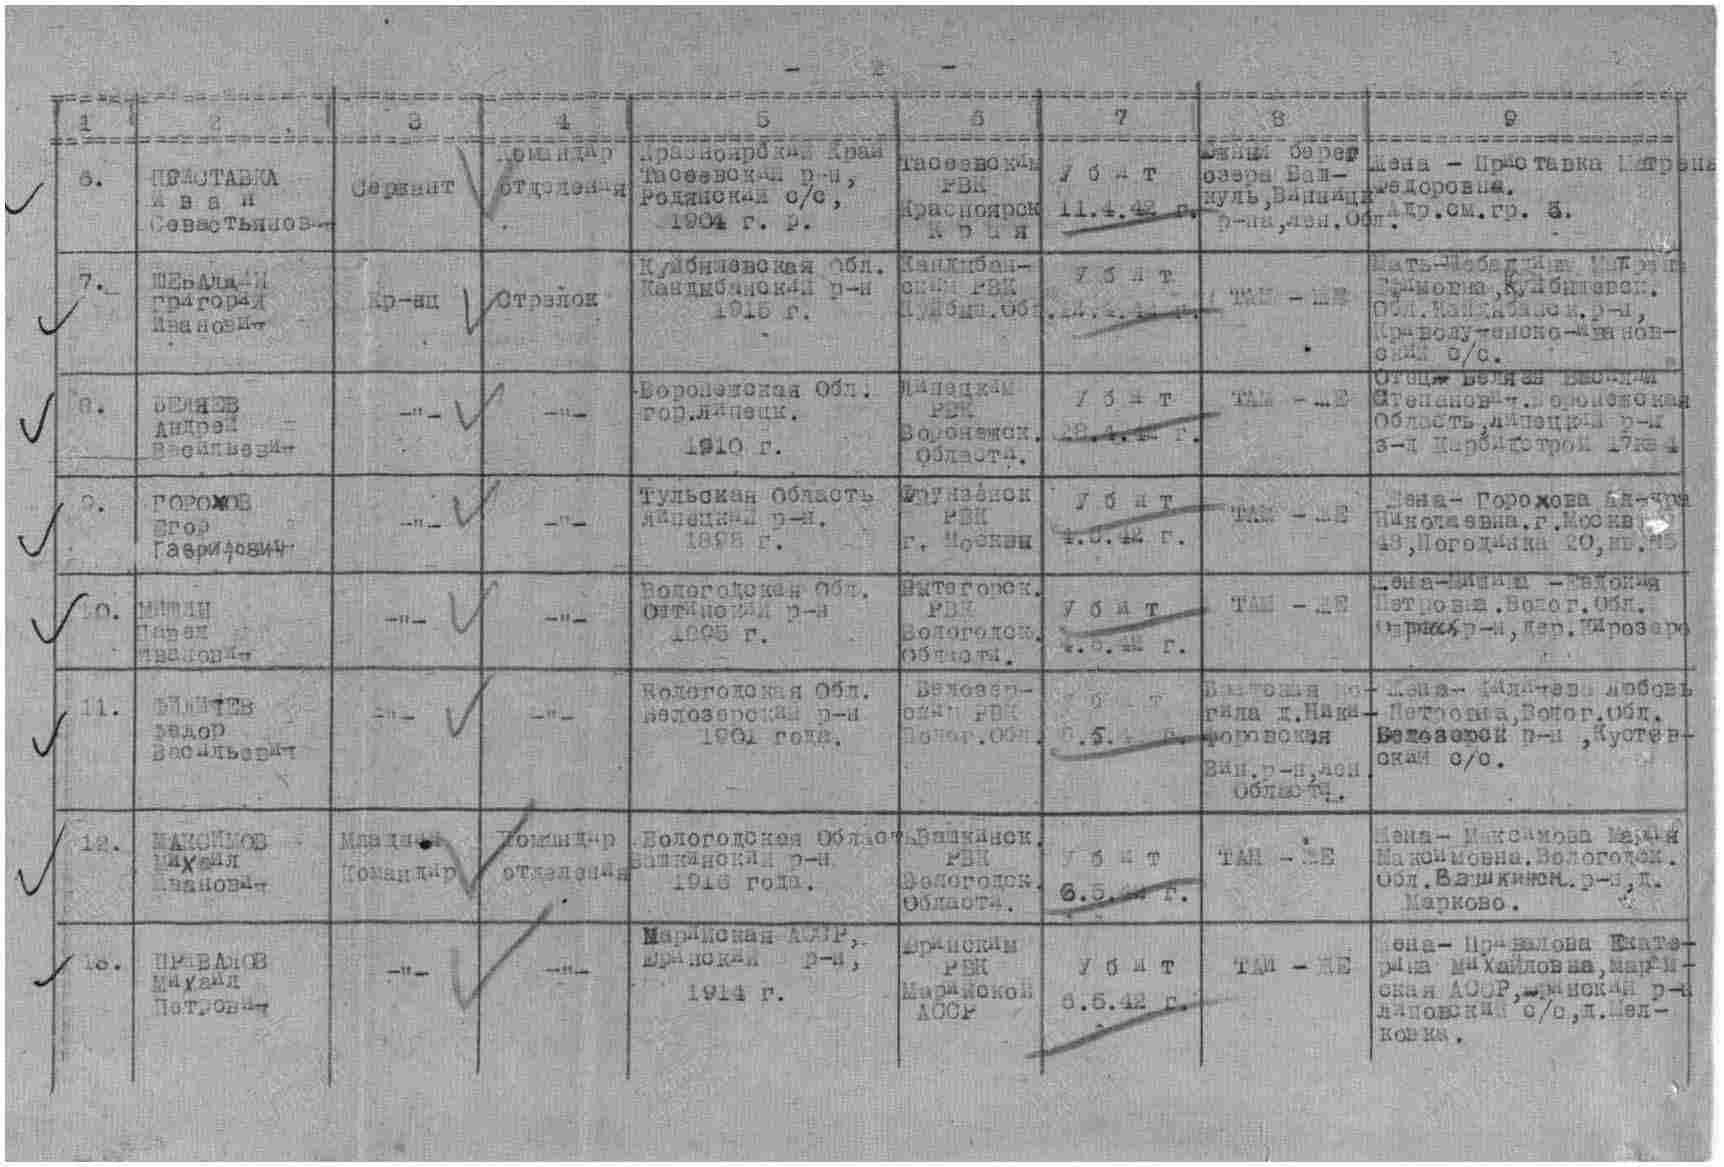 - 2 -
1 2 3 4 5 6 7 8 9
6. ПРИСТАВКА
Иван
Севастьянович
Сержант
Командир
отделения
Красноярский Край
Тасеевский р-н,
Родянский с/с,
1904 г. р.
Тасеевским
РВК
Красноярск
Края
Убит
11.4.42 г.
Южный берег
озера Ван-
куль, Винницк
р-на, Лен. Обл.
Жена - Приставка Матрена
Федоровна.
Адр.см.гр. 5.
7. ШЕБАЛДИН
Григорий
Иванович
Кр-ец
Стрелок
Куйбышевская Обл.
Кандыбинский р-н
1915 г.
Кандыбин-
ским РВК
Куйбыш.Обл.
Убит
14.4.42 г.
ТАМ - ЖЕ
Ефимовна, Куйбышевск.
Обл. р-н,
ский с/с.
8. БЕЛЯЕВ
Андрей
Васильевич
-"-
-"-
Воронежская Обл.
гор.Липецк.
1910 г.
Липецким
РВК
Воронежск.
Области.
Убит
28.4.42 г.
ТАМ - ЖЕ
Отец Беляев Василий
Степанович.Воронежская
Область,Липецкий р-н
з-д 17кв 4
9. ГОРОХОВ
Егор
Гаврилович
-"-
-"-
Тульская Область
Липецкий р-н.
1898 г.
Фрунзенск
РВК
г. Москвы
Убит
4.5.42 г.
ТАМ - ЖЕ
Жена- Горохова
Николаевна.г.Москва
48,Погодинка 20,кв.
10. МИШИН
Павел
Иванович
-"-
-"-
Вологодская Обл.
р-н
1895 г.
Вытегорск.
РВК
Вологодск.
Области.
Убит
4.5.42 г.
ТАМ - ЖЕ
Жена-Мишина -Евдокия
Петровна.Волог.Обл.
р-н,дер.
11. ФИЛИЧЕВ
Федор
Васильевич
-"-
-"-
Вологодская Обл.
Белозерский р-н
1901 года.
Белозер-
ским РВК
Волог.Обл.
Убит
Братская мо-
гила д.Ники-
форовская
Вин.р-н,Лен.
Области.
Жена- Филичева Любовь
Петровна,Волог.Обл.
Белозерск р-н ,Кустев-
ский с/с.
12. МАКСИМОВ
Михаил
Иванович
Младший
Командир
Командир
отделения
Вологодская Область
Вашкинский р-н.
1916 года.
Вашкинск.
РВК
Вологодск.
Области.
Убит
6.5.42 г.
ТАМ - ЖЕ
Жена- Максимова Мария
Максимовна.Вологодск.
Обл.Вашкинск.р-н,д.
Марково.
13. ПРИВАЛОВ
Михаил
Петрович
-"-
-"-
Марийская АССР,
Юринский р-н,
1914 г.
Юринским
РВК
Марийской
АССР
Убит
6.5.42 г.
ТАМ - ЖЕ
Жена- Привалова Екате-
рина Михайловна,Марий-
ская АССР,Юринский р-н
Липовский с/с,д.Шел-
ковка.